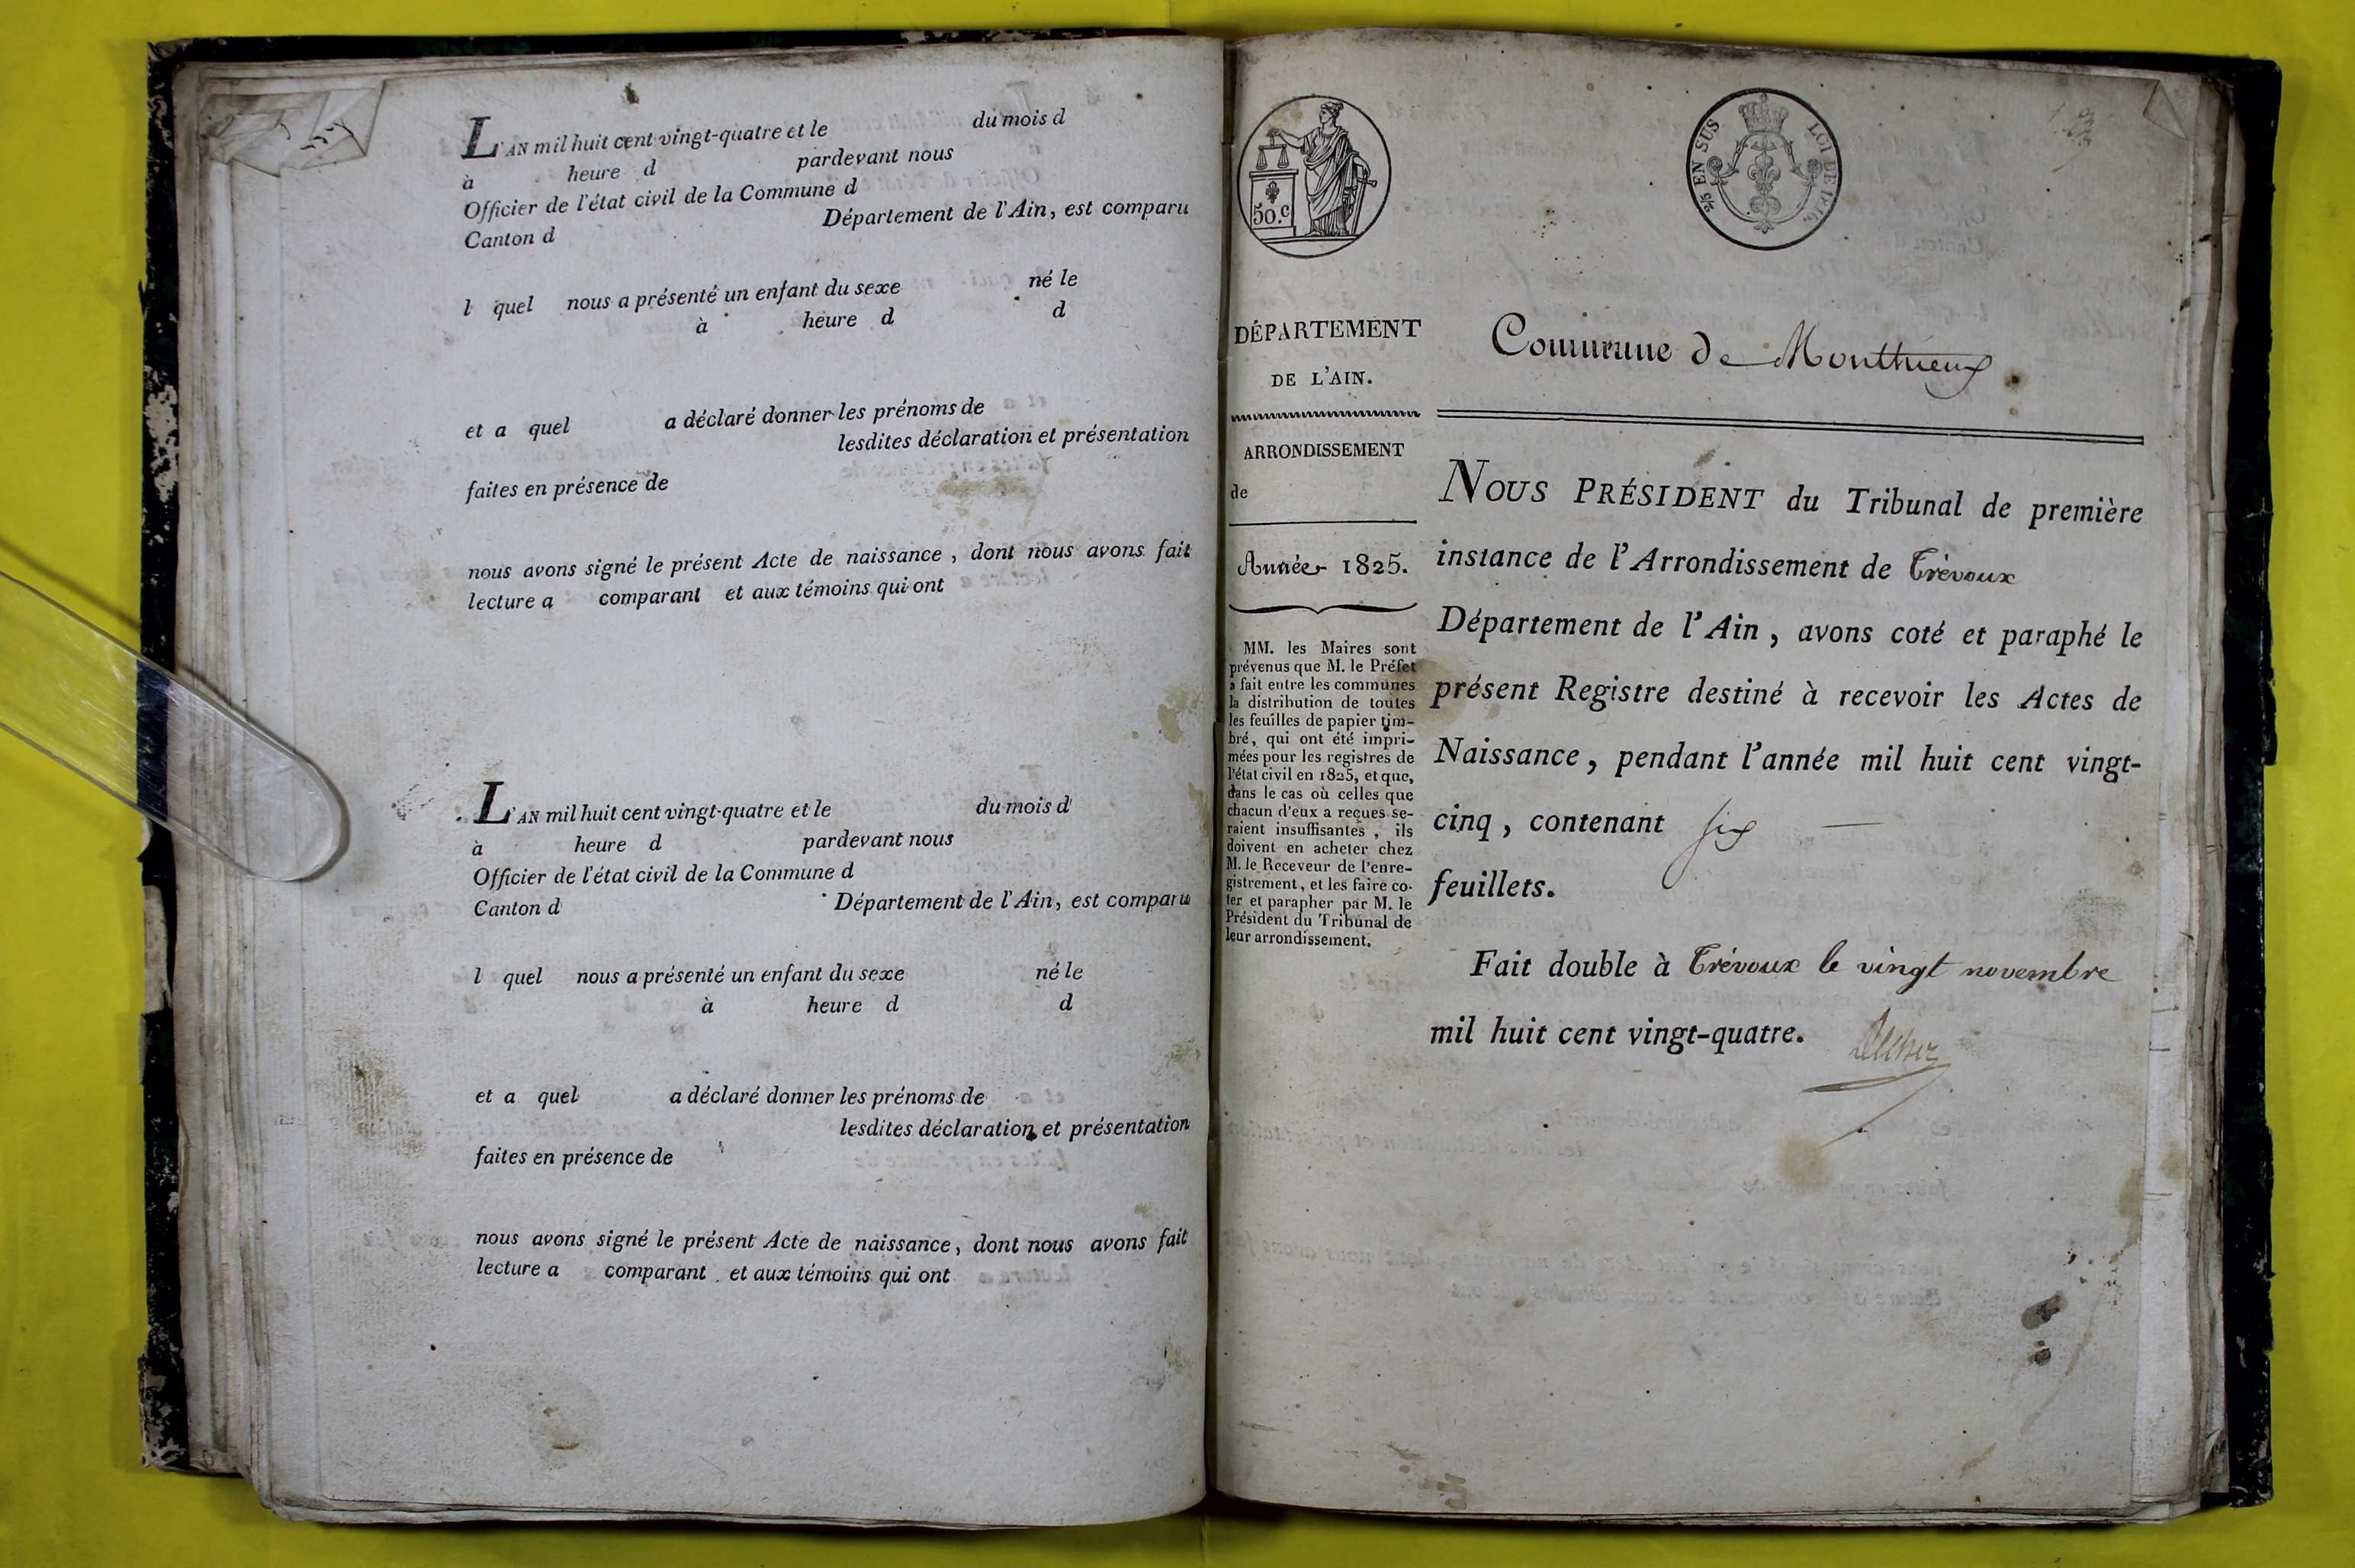 L'AN mil huit cent vingt-quatre et le du mois d
à heure d pardevant nous
Officier de l'état civil de la Commune d
Canton d Département de l'Ain, est comparu
l quel nous a présenté un enfant du sexe né le
à heure d d
et a quel a déclaré donner les prénoms de
lesdites déclaration et présentation
faites en présence de
nous avons signé le présent Acte de naissance, dont nous avons fait
lecture a comparant et aux témoins qui ont
L'AN mil huit cent vingt-quatre et le du mois d
à heure d pardevant nous
Officier de l'état civil de la Commune d
Canton d Département de l'Ain, est comparu
l quel nous a présenté un enfant du sexe né le
à heure d d
et a quel a déclaré donner les prénoms de
lesdites déclaration et présentation
faites en présence de
nous avons signé le présent Acte de naissance, dont nous avons fait
lecture a comparant et aux témoins qui ont
50.c
EN SUS LOI DE
DÉPARTEMENT
DE L'AIN.
ARRONDISSEMENT
de
Année 1825.
MM. les Maires sont
prévenus que M. le Préfet
a fait entre les communes
la distribution de toutes
les feuilles de papier tim-
bré, qui ont été impri-
mées pour les registres de
l'état civil en 1825, et que,
dans le cas où celles que
chacun d'eux a reçues se-
raient insuffisantes, ils
doivent en acheter chez
M. le Receveur de l'enre-
gistrement, et les faire co-
ter et parapher par M. le
Président du Tribunal de
leur arrondissement.
Commune de Monthieux
NOUS PRÉSIDENT du Tribunal de première
instance de l'Arrondissement de Trévoux
Département de l'Ain, avons coté et paraphé le
présent Registre destiné à recevoir les Actes de
Naissance, pendant l'année mil huit cent vingt-
cinq, contenant six
feuillets.
Fait double à Trévoux le vingt novembre
mil huit cent vingt-quatre.